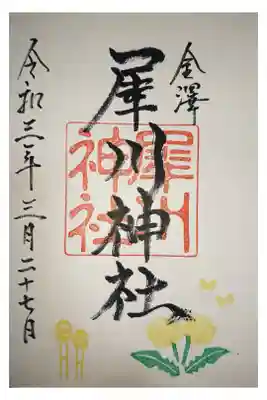 金澤
犀川神社
犀川神社
令和三年三月二十七日